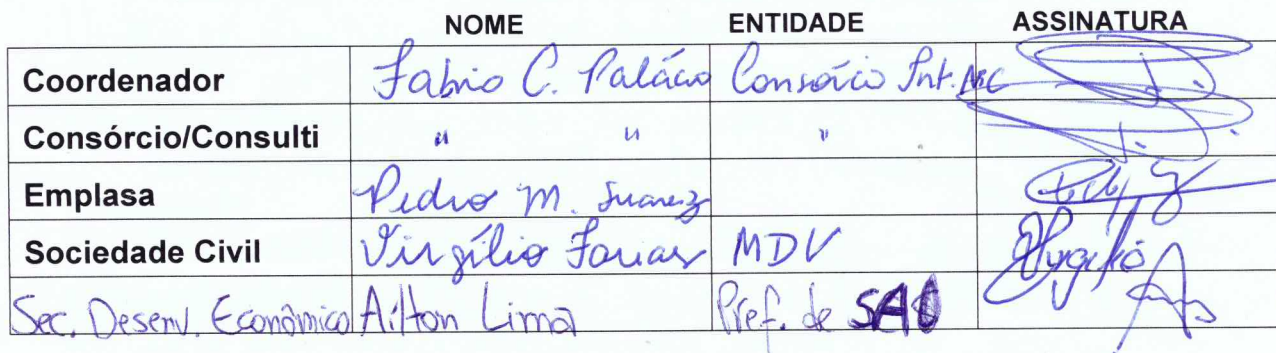 NOME ENTIDADE ASSINATURA
Coordenador Fabio C. Palácio Consórcio Int. ABC
Consórcio/Consulti " " "
Emplasa Pedro M. Suarez
Sociedade Civil Virgílio Farias MDV Virgílio
Sec. Desenv. Econômico Ailton Lima Pref. de